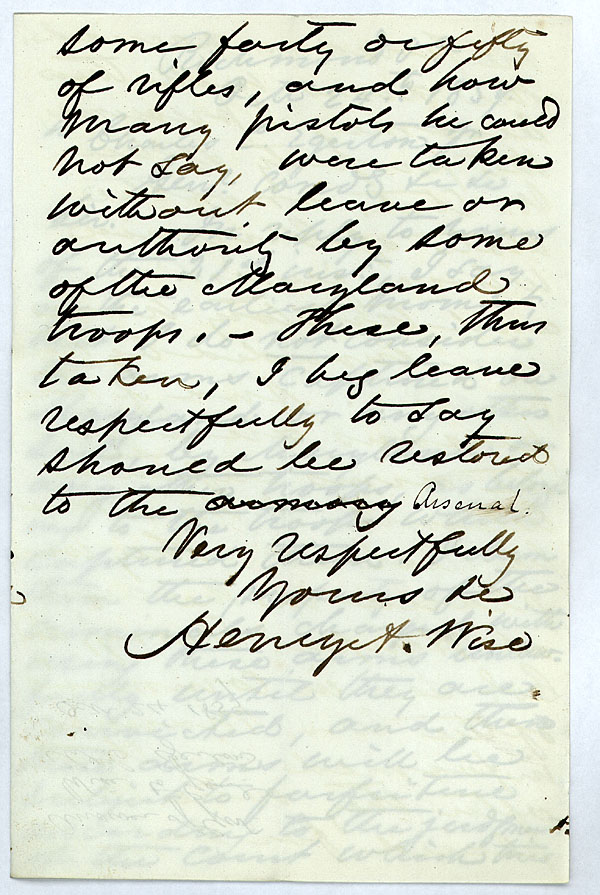 some forty or fifty
of rifles, and how
many pistols he could
not say, were taken
without leave or
authority by some
of the Maryland
troops. – These, thus
taken, I beg leave
respectfully to say
should be restored
to the armory Arsenal.
Very respectfully
Yours &c
Henry A. Wise